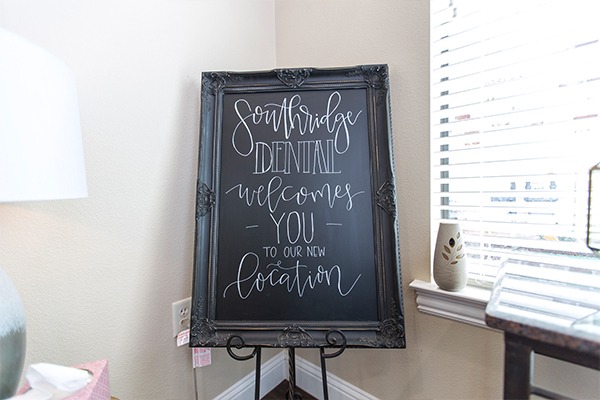 Southridge
DENTAL
welcomes
— YOU —
TO OUR NEW
location